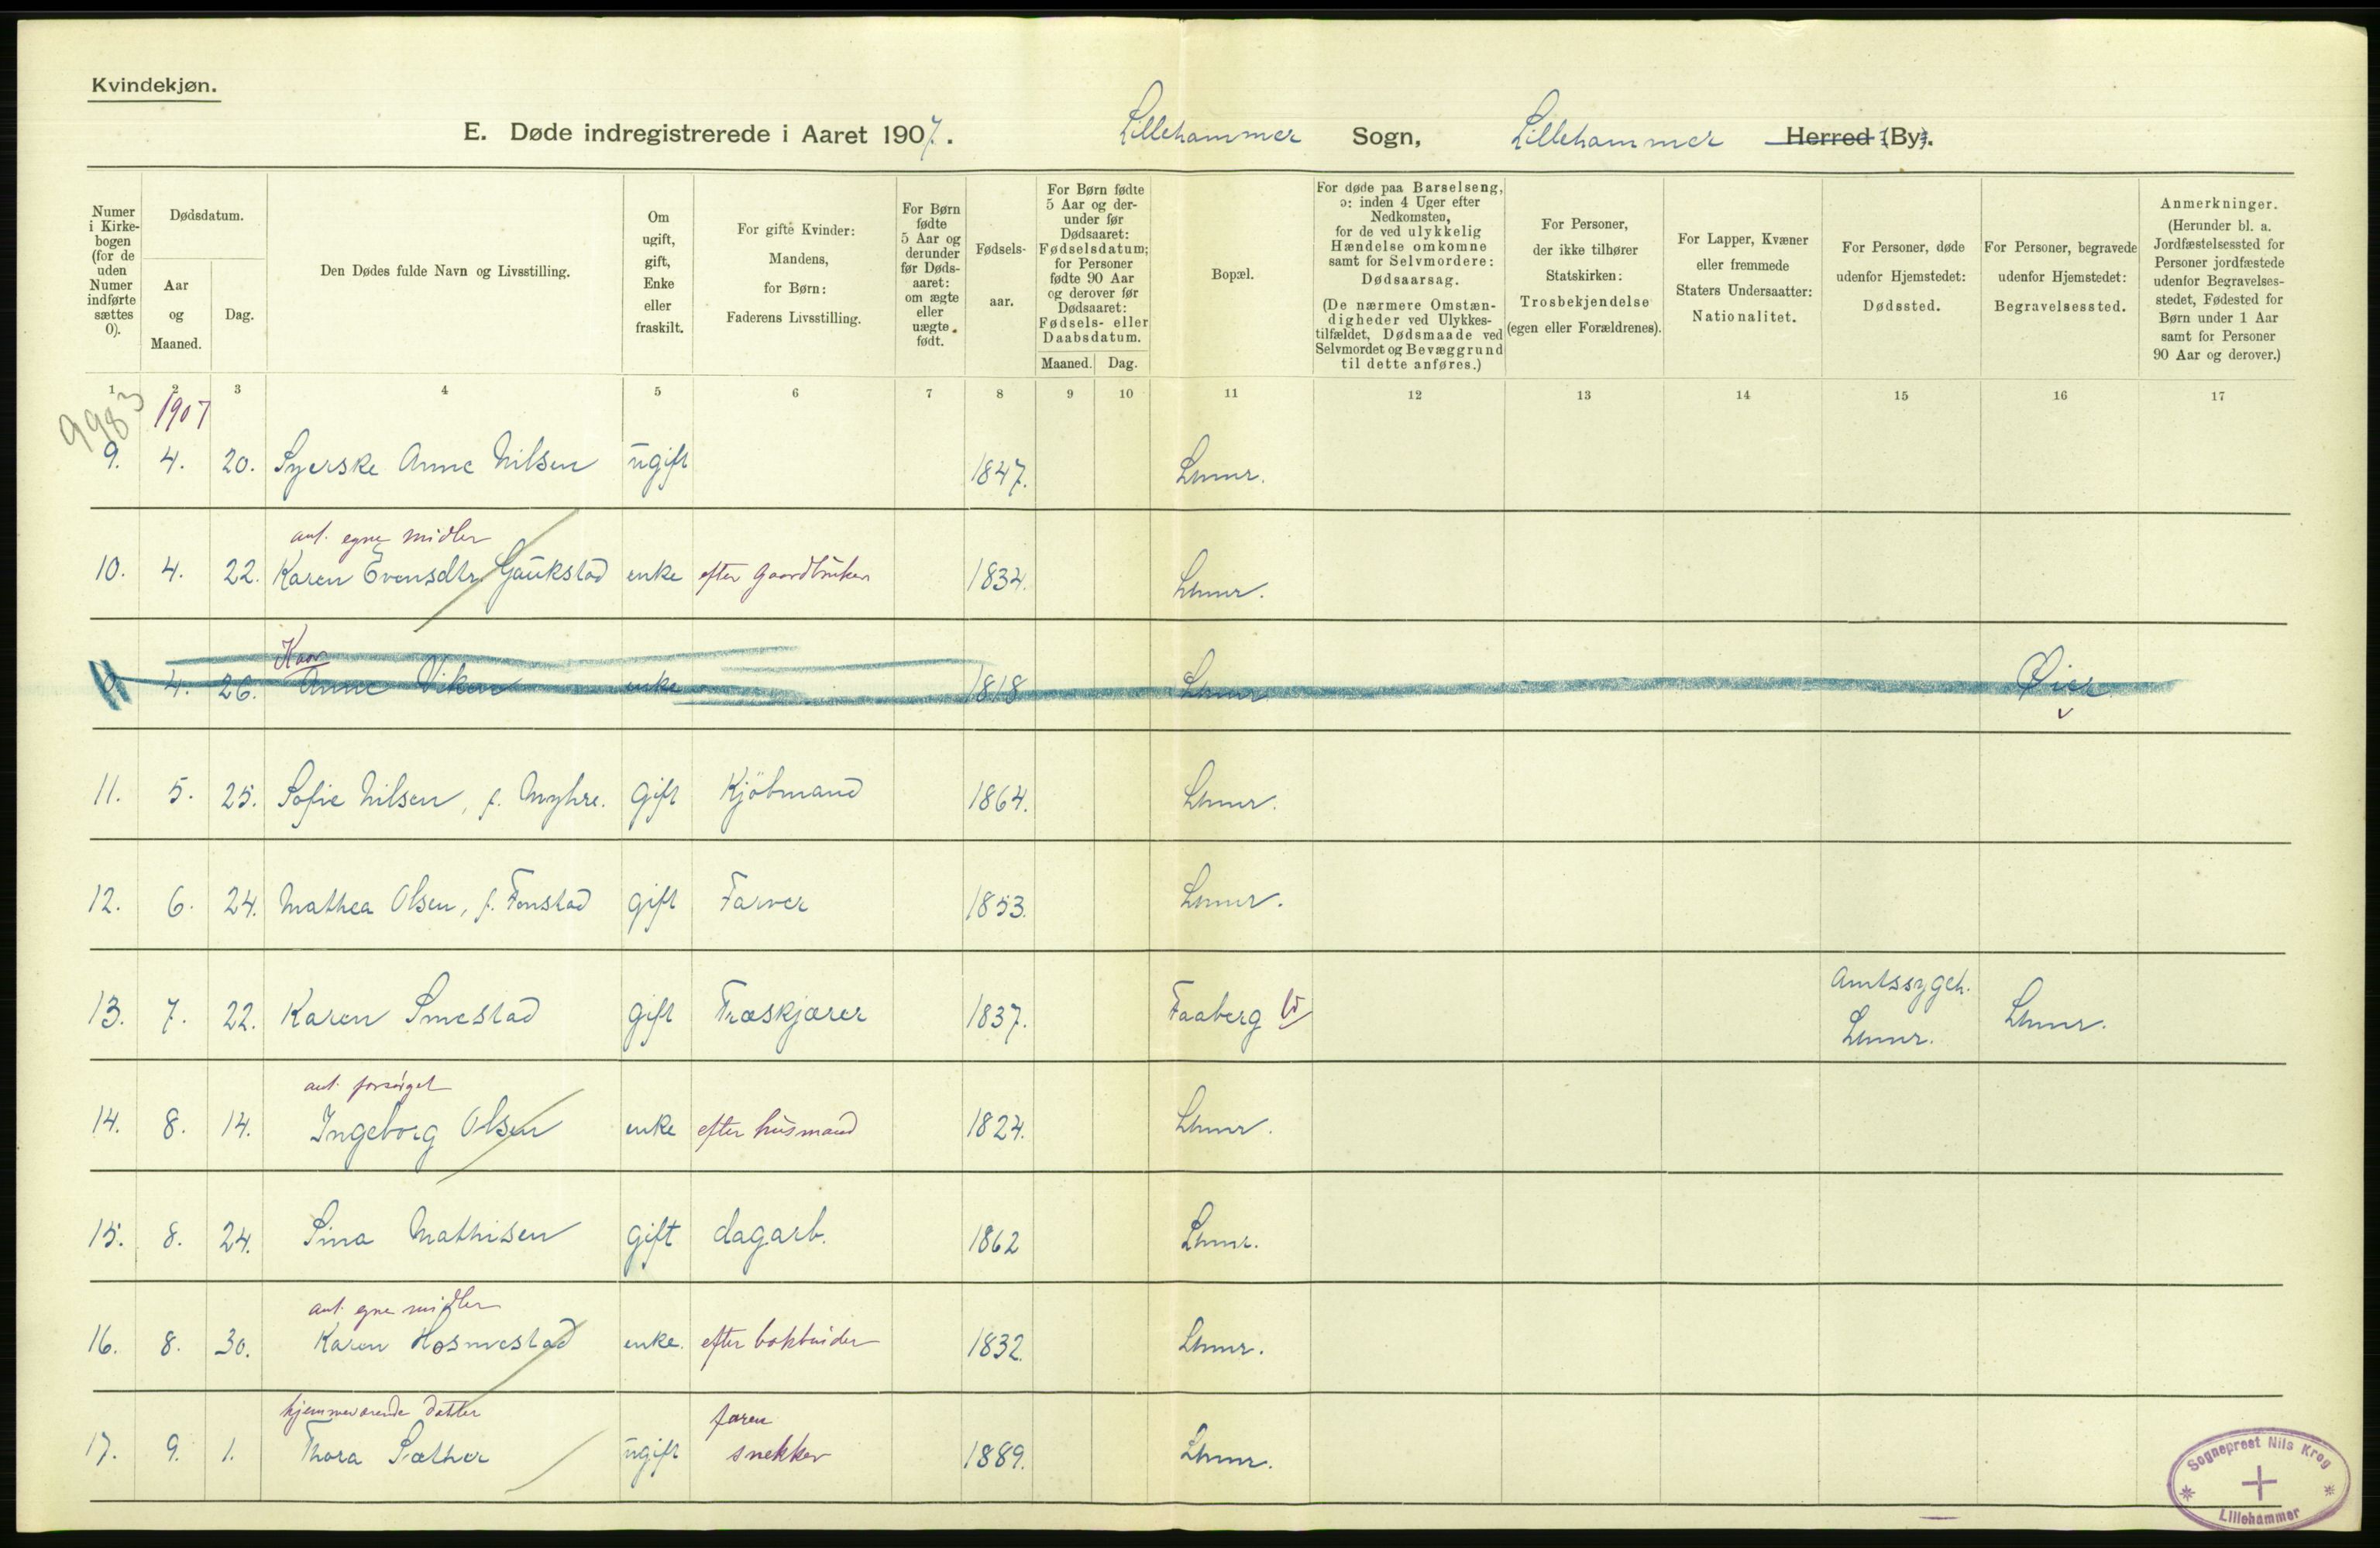 Kvindekjøn.
E. Døde indregistrerede i Aaret 1907. Lillehammer Sogn, Lillehammer Herred (By).
Numer i Kirkebogen (for de uden Numer indførte sættes 0).
Dødsdatum.
Aar og Maaned.
Dag.
Den Dødes fulde Navn og Livsstilling.
Om ugift, gift, Enke eller fraskilt.
For gifte Kvinder: Mandens, for Børn: Faderens Livsstilling.
For Børn fødte 5 Aar og derunder før Dødsaaret: om ægte eller uægte født.
Fødselsaar.
For Børn fødte 5 Aar og derunder før Dødsaaret: Fødselsdatum; for Personer fødte 90 Aar og derover før Dødsaaret: Fødsels- eller Daabsdatum.
Maaned. Dag.
Bopæl.
For døde paa Barselseng, ɔ: inden 4 Uger efter Nedkomsten, for de ved ulykkelig Hændelse omkomne samt for Selvmordere: Dødsaarsag. (De nærmere Omstændigheder ved Ulykkestilfældet, Dødsmaade ved Selvmordet og Bevæggrund til dette anføres.)
For Personer, der ikke tilhører Statskirken: Trosbekjendelse (egen eller Forældrenes).
For Lapper, Kvæner eller fremmede Staters Undersaatter: Nationalitet.
For Personer, døde udenfor Hjemstedet: Dødssted.
For Personer, begravede udenfor Hjemstedet: Begravelsessted.
Anmerkninger. (Herunder bl. a. Jordfæstelsessted for Personer jordfæstede udenfor Begravelsesstedet, Fødested for Børn under 1 Aar samt for Personer 90 Aar og derover.)
1 2 3 4 5 6 7 8 9 10 11 12 13 14 15 16 17
9983 1907
9. 4. 20. Syerske Anne Nilsen ugift 1847. Lhmr.
ant. egne midler
10. 4. 22. Karen Evensdtr Gaukstad enke efter gaardbruker 1834. Lhmr.
Kaar
0. 4. 26. Anne Viken enke 1818 Lhmr. Øier.
11. 5. 25. Sofie Nilsen, f. Myhre. gift Kjöbmand 1864. Lhmr.
12. 6. 24. Mathea Olsen, f. Fonstad gift Farver 1853. Lhmr.
13. 7. 22. Karen Smestad gift Træskjærer 1837. Faaberg Amtssygeh. Lhmr. Lhmr.
ant. forsørget
14. 8. 14. Ingeborg Olsen enke efter husmand 1824. Lhmr.
15. 8. 24. Sina Mathisen gift dagarb. 1862 Lhmr.
ant. egne midler
16. 8. 30. Karen Hosmestad enke. efter bokbinder 1832. Lhmr.
hjemmeværende datter faren
17. 9. 1. Thora Sæther ugift snekker 1889. Lhmr.
Sogneprest Nils Krog
Lillehammer